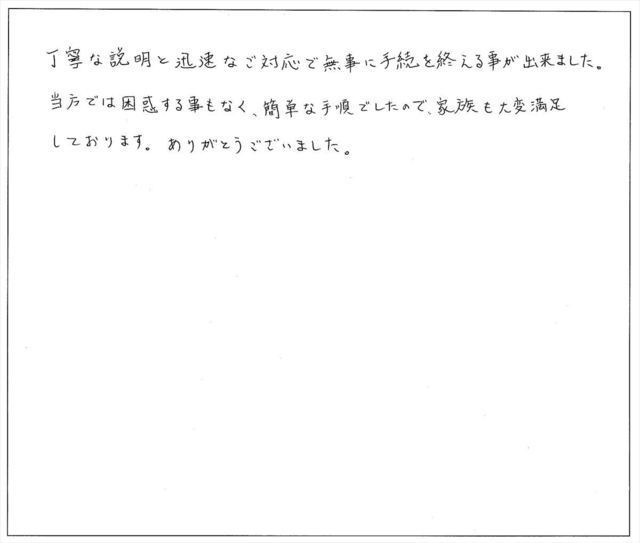 丁寧な説明と迅速なご対応で無事に手続を終える事が出来ました。
当方では困惑する事もなく、簡単な手順でしたので、家族も大変満足
しております。ありがとうございました。